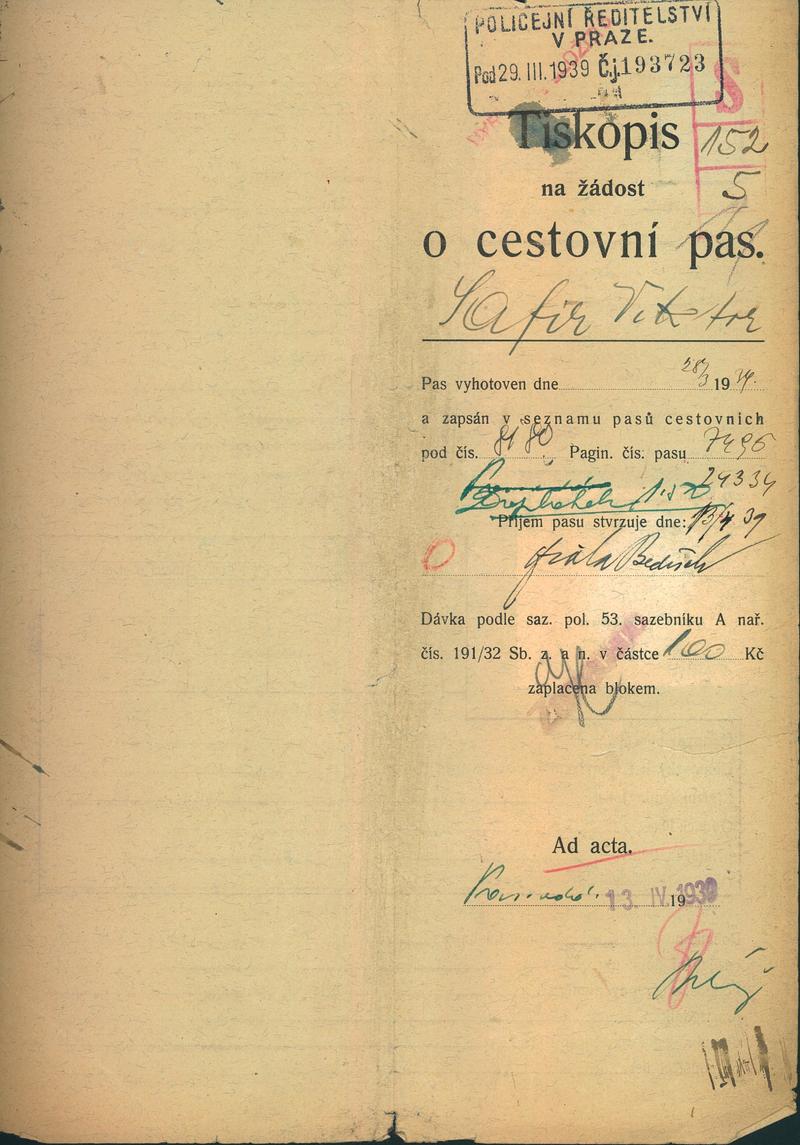 POLICEJNÍ ŘEDITELSTVÍ
V PRAZE.
Pod 29. III. 1939 Č.j. 193723
S
Tiskopis
152
na žádost
5
o cestovní pas.
Safir Viktor
Pas vyhotoven dne 28/3 19 39.
a zapsán v seznamu pasů cestovních
pod čís. 8180, Pagin. čís. pasu 7496
24334
Příjem pasu stvrzuje dne: 13/4 39
Bedřich
Dávka podle saz. pol. 53. sazebníku A nař.
čís. 191/32 Sb. z. a n. v částce 100 Kč
zaplacena blokem.
Ad acta.
13. IV. 1939
19